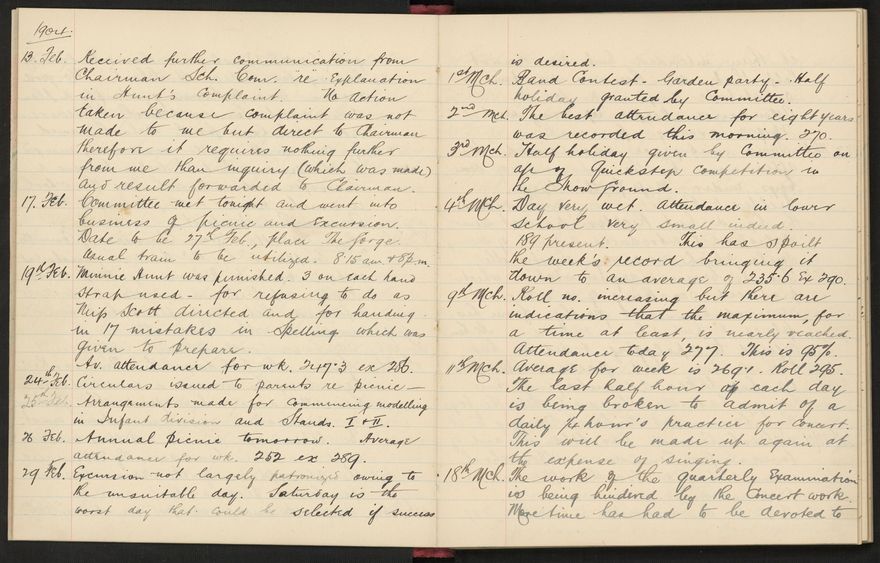 1904.
13. Feb. Received further communication from
Chairman Sch. Com. re Explanation
in Hunt's Complaint. No action
taken because complaint was not
made to me but direct to Chairman
therefore it requires nothing further
from me than inquiry (which was made)
and result forwarded to Chairman.
17. Feb. Committee met tonight and went into
business of picnic and Excursion.
Date to be 27th Feb., place The Gorge.
Usual train to be utilized. 8.15 a.m. & 8 p.m.
19th Feb. Minnie Hunt was punished. 3 on each hand
Strap used - for refusing to do as
Miss Scott directed and for handing
in 17 mistakes in Spelling which was
given to prepare.
Av. attendance for wk. 247.3 ex 286.
24th Feb. Circulars issued to parents re picnic -
25th Feb. Arrangements made for commencing modelling
in Infant division and Stands. I & II.
26 Feb. Annual picnic tomorrow. Average
attendance for wk. 252 ex 289.
29 Feb. Excursion not largely patronized owing to
the unsuitable day. Saturday is the
worst day that could be selected if success
is desired.
1st Mch. Band Contest - Garden party - Half
holiday granted by Committee.
2nd Mch. The best attendance for eight years
was recorded this morning. 270.
3rd Mch. Half holiday given by Committee on
a/c of Quickstep competition in
the Show ground.
4th Mch. Day very wet. Attendance in lower
school very small indeed.
189 present. This has spoilt
the week's record bringing it
down to an average of 235.6 Ex 290.
9th Mch. Roll no. increasing but there are
indications that the maximum, for
a time at least, is nearly reached.
Attendance today 277. This is 95%.
11th Mch. Average for week is 269.1. Roll 295.
The last half hour of each day
is being broken to admit of a
daily ½ hour's practice for concert.
This will be made up again at
the expense of singing.
18th Mch. The work of the quarterly Examination
is being hindered by the Concert work.
More time has had to be devoted to